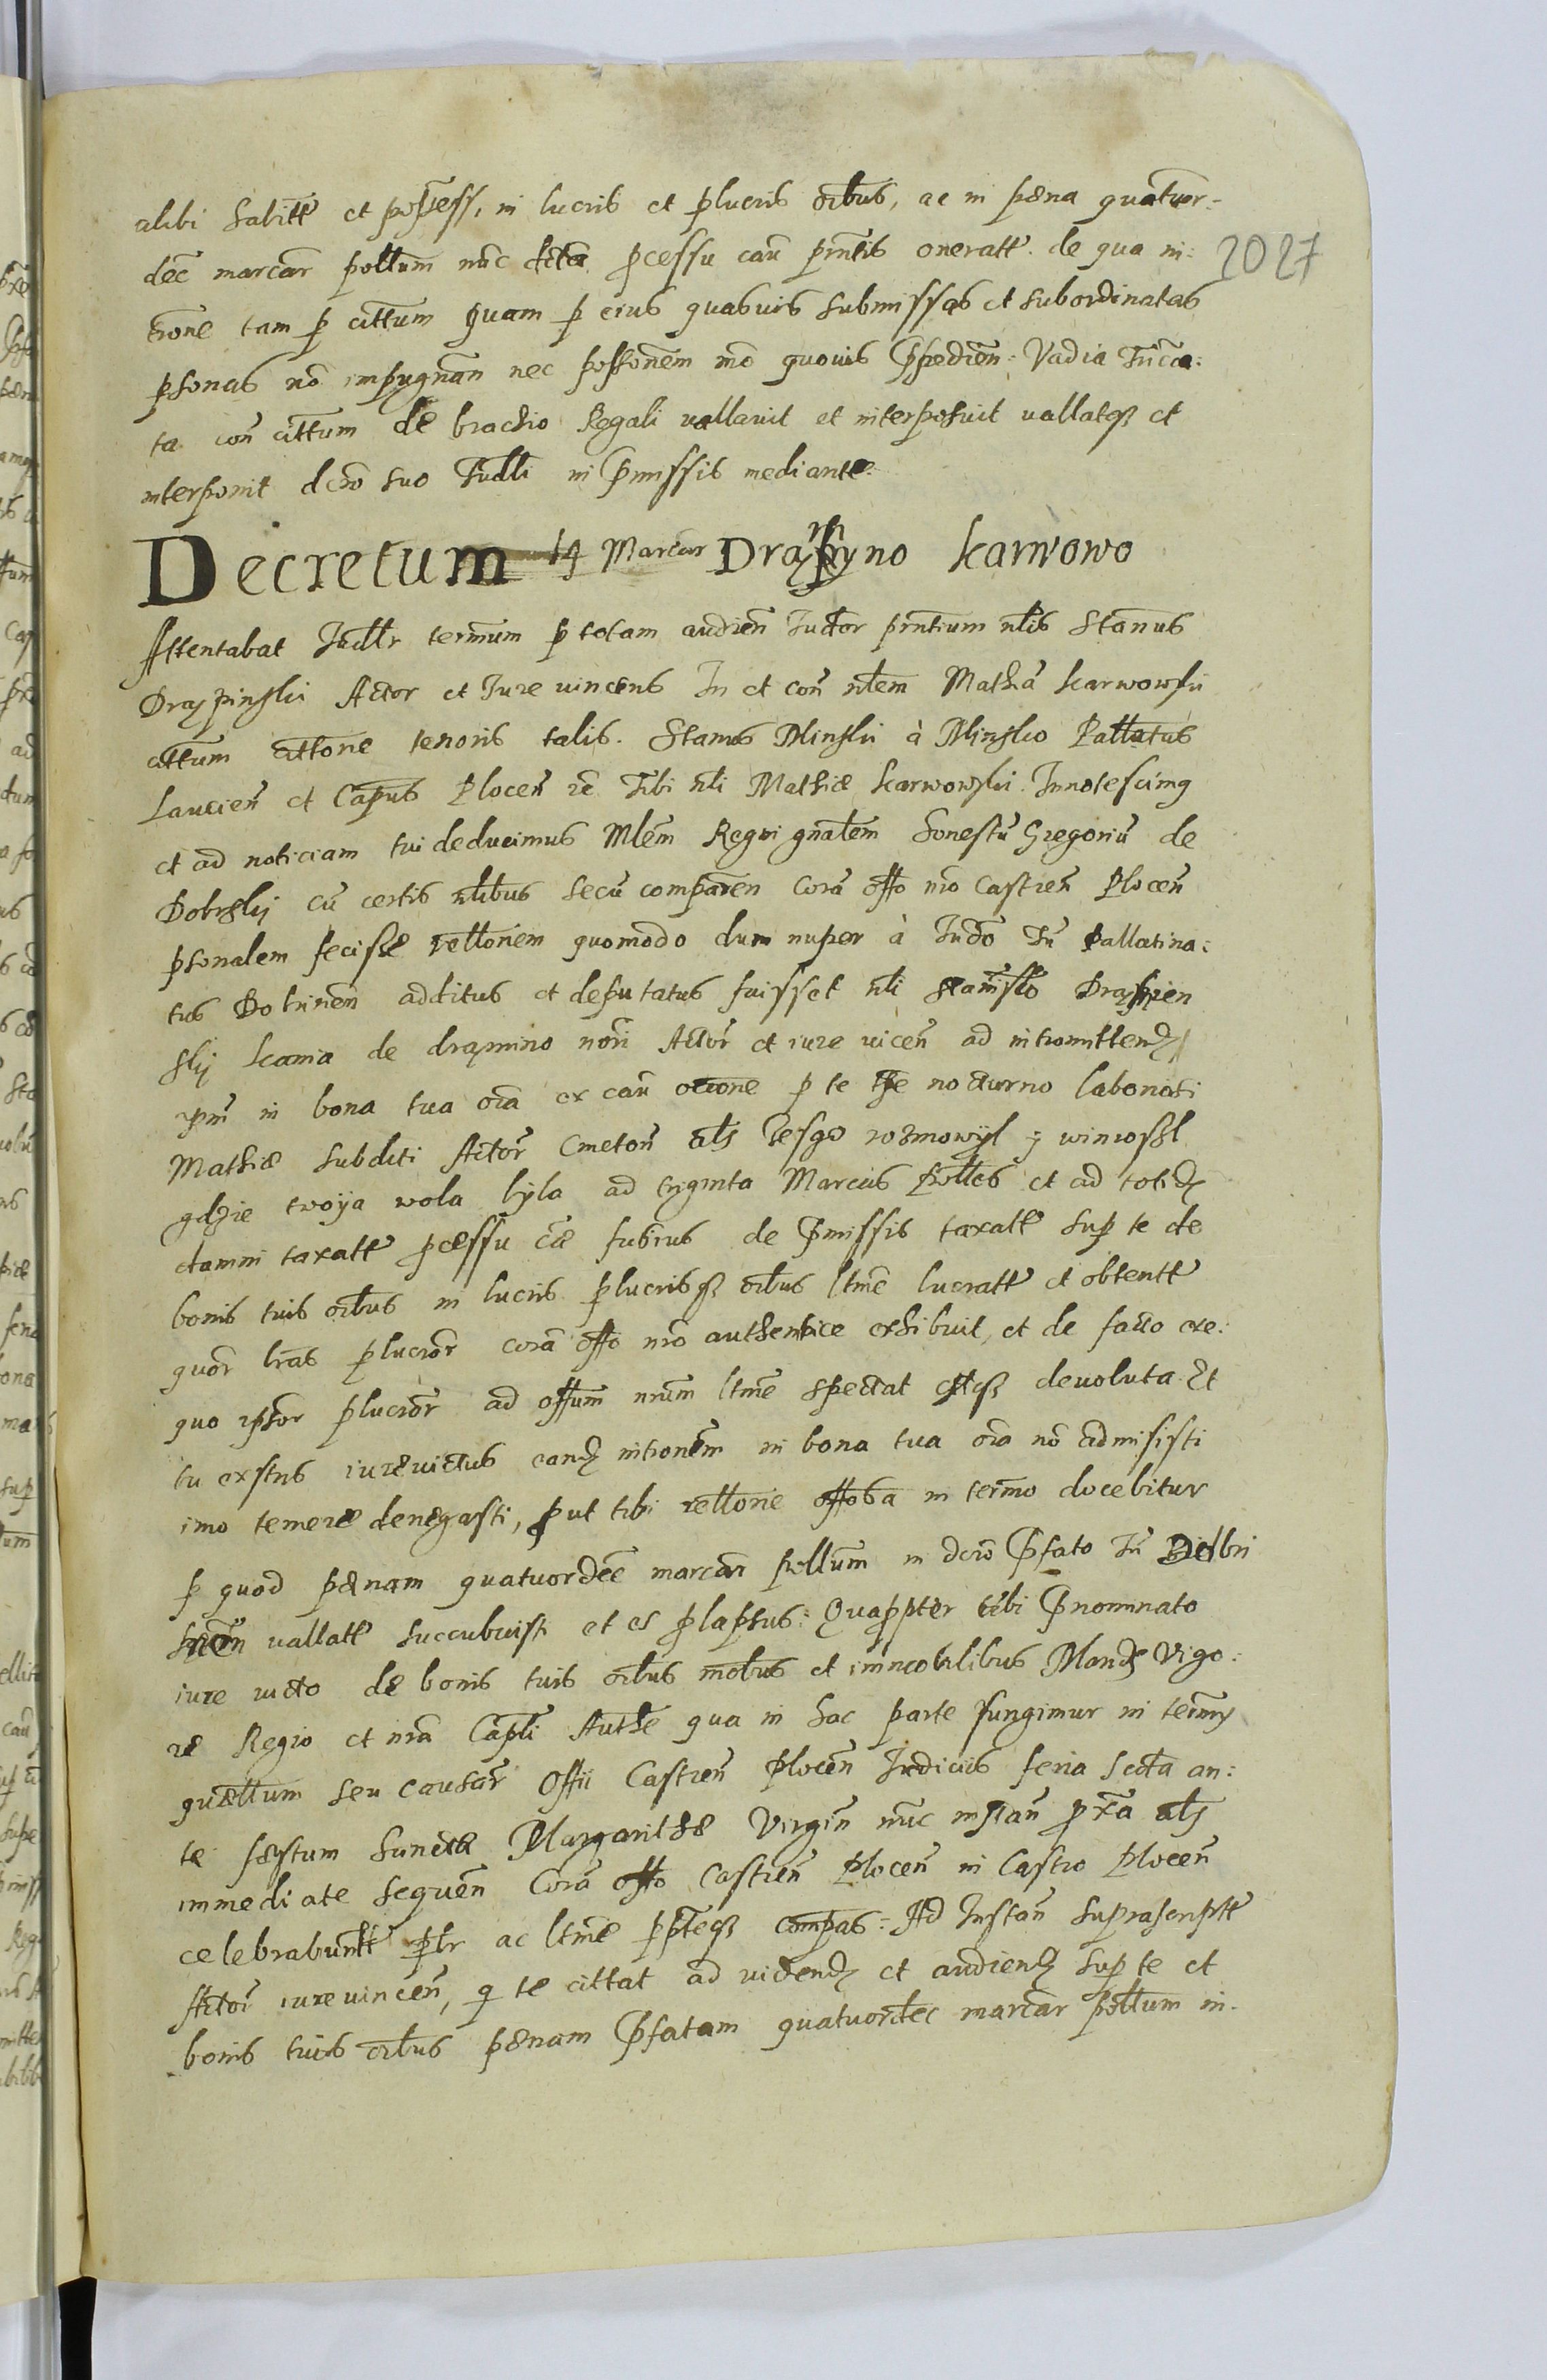 alibi habitt et possess, in lucris et plucris oibus, ac in pæna quatuor-
dec marcar pollum nunc dicta pcessu cau pntis oneratt. de qua in:
2027
trone tam p cittum quam p eius quasuis submissas et subordinatas
psonas no impugnan nec possonem mo quouis Ppedien: Vadia
ta con cittum de brachio Regali vallauit et interposuit uallatqz et
interponit dcro suo Judli in Pmissis mediante.
Decretum 14 Marcar Drąpyno karwowo
Attentabat Judlr termum p totam audien Judior pntium nlis Stanus
Drąpinsky Actor et Jure uincens In et con nlem Mathia karwowsky
cittum cittone tenoris talis. Stanus Minsky à Minsko Pallatus
Lancien et Capnus Plocen re Tibi nli Mathiæ karwowsky. Innotescimq
et ad noticiam tui deducimus Mlem Regni gnalem honestu Gregoriu de
cu certis nlibus secu comparen cora offo nro Castren Plocen
psonalem fecisse rellonem quomodo dum nuper à Judo pallatina:
tus Dobrinen additus et deputatus fuisset nli Stanislo Drąpien
sky kania de drąpnino Actor et iure uicen ad intromittendz
ipm in bona tua oia ex cau p te nocturno laboriosi
Mathiæ subditi Actor Cmeton als ze sgo rozmowyl y winiossl
gdzie twoya wola byla ad triginta Marcas Polles et ad totidz
damni taxatt pcessu fusius de Pmissis taxatt sup te de
bonis tuis oibus in lucris plucrisqz oibus ltme lucratt et obtentt
quor lras plucror cora offo nro authentice exhibuit, et de facto exe:
quo ipsor plucror ad offum nrum ltme spectat estqz deuoluta. Et
tu exstns iureuictus eandz introném in bona tua oia no admisisti
imo temere denegasti, put tibi rellone offosa in termo docebitur
p quod pænam quatuordec marcar pollum in dcro Pfato Dobri
nen uallatt succubuisti et es plapsus: Quappter tibi Pnominato
iure uicto de bonis tuis oibus mobus et immobilibus Mandz Vigo:
re Regio et nra Capli Authe qua in hac parte fungimur in termis
querellum seu causar Offii Castren Plocen Judiciis feria scda an:
te fæstum Sanctæ Margarithæ Virgin nunc instan pxa als
immediate sequen Cora offo Castren Plocen in Castro Plocen
celebrabuntt plr ac ltme ppteqz compas: Ad Instan suprascriptt
Actor iure uincen, q te cittat ad uidendz et audiendz sup te et
bonis tuis oibus pænam Pfatam quatuordec marcar pollum in-